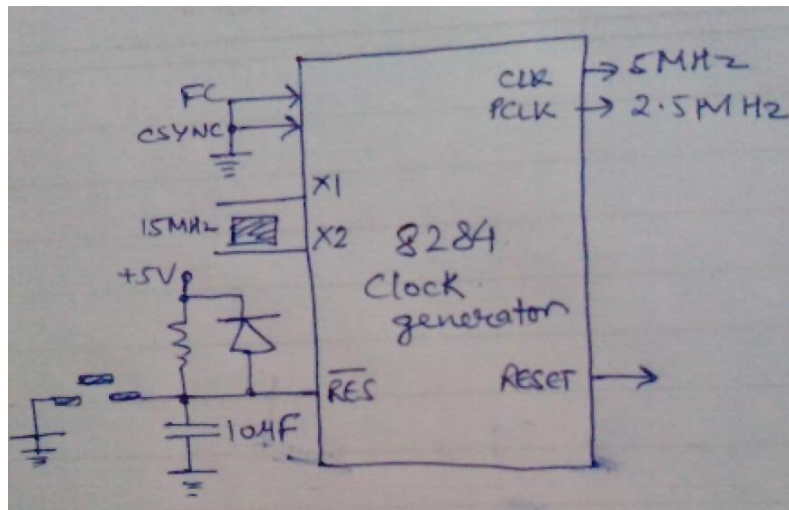 FC
CSYNC
X1
15MHz
X2
+5V
RES
10μF
8284
Clock
generator
CLK
PCLK
5MHz
2.5MHz
RESET